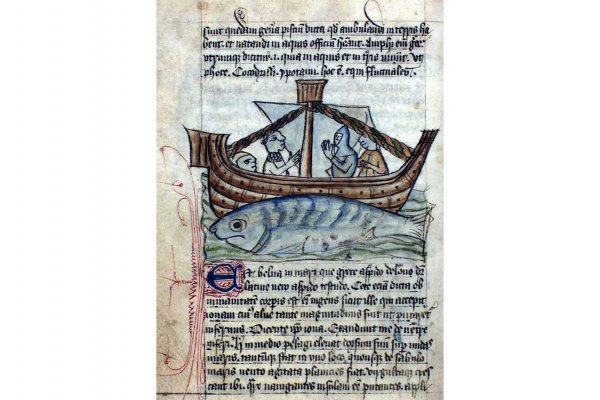 sunt quedam gen̄a pisciū dicta qđ ambulandi in terris ha
bent. et natandi in aquis officiū hēant. Amphi eni grec
utrumque dicitur .i. quia in aquis et in tris uiuūt. ut
phoce. Cocodrilli. ypotami. hoc ē equi fluctuales.
Est belua in mari que grece aspido delone dr
latine uero aspido testudo. Cete etiā dicta ob
immanitatem corpis est en̄ ingens sicut ille qui excepit
ionam cui' aluus tante magnitudinis fuit ut putaret
infernus. Dicente ipō iona. Exaudiuit me de uentre
inferi. H in medio pelagi eleuat dorsum suū sup undas
maris. tantūque stat in uno loco. quousque de sabulo
maris uento agitata planicies fiat. uirgultaque cres
cant ibi. Qre nauigantes insulam eē putantes. appli